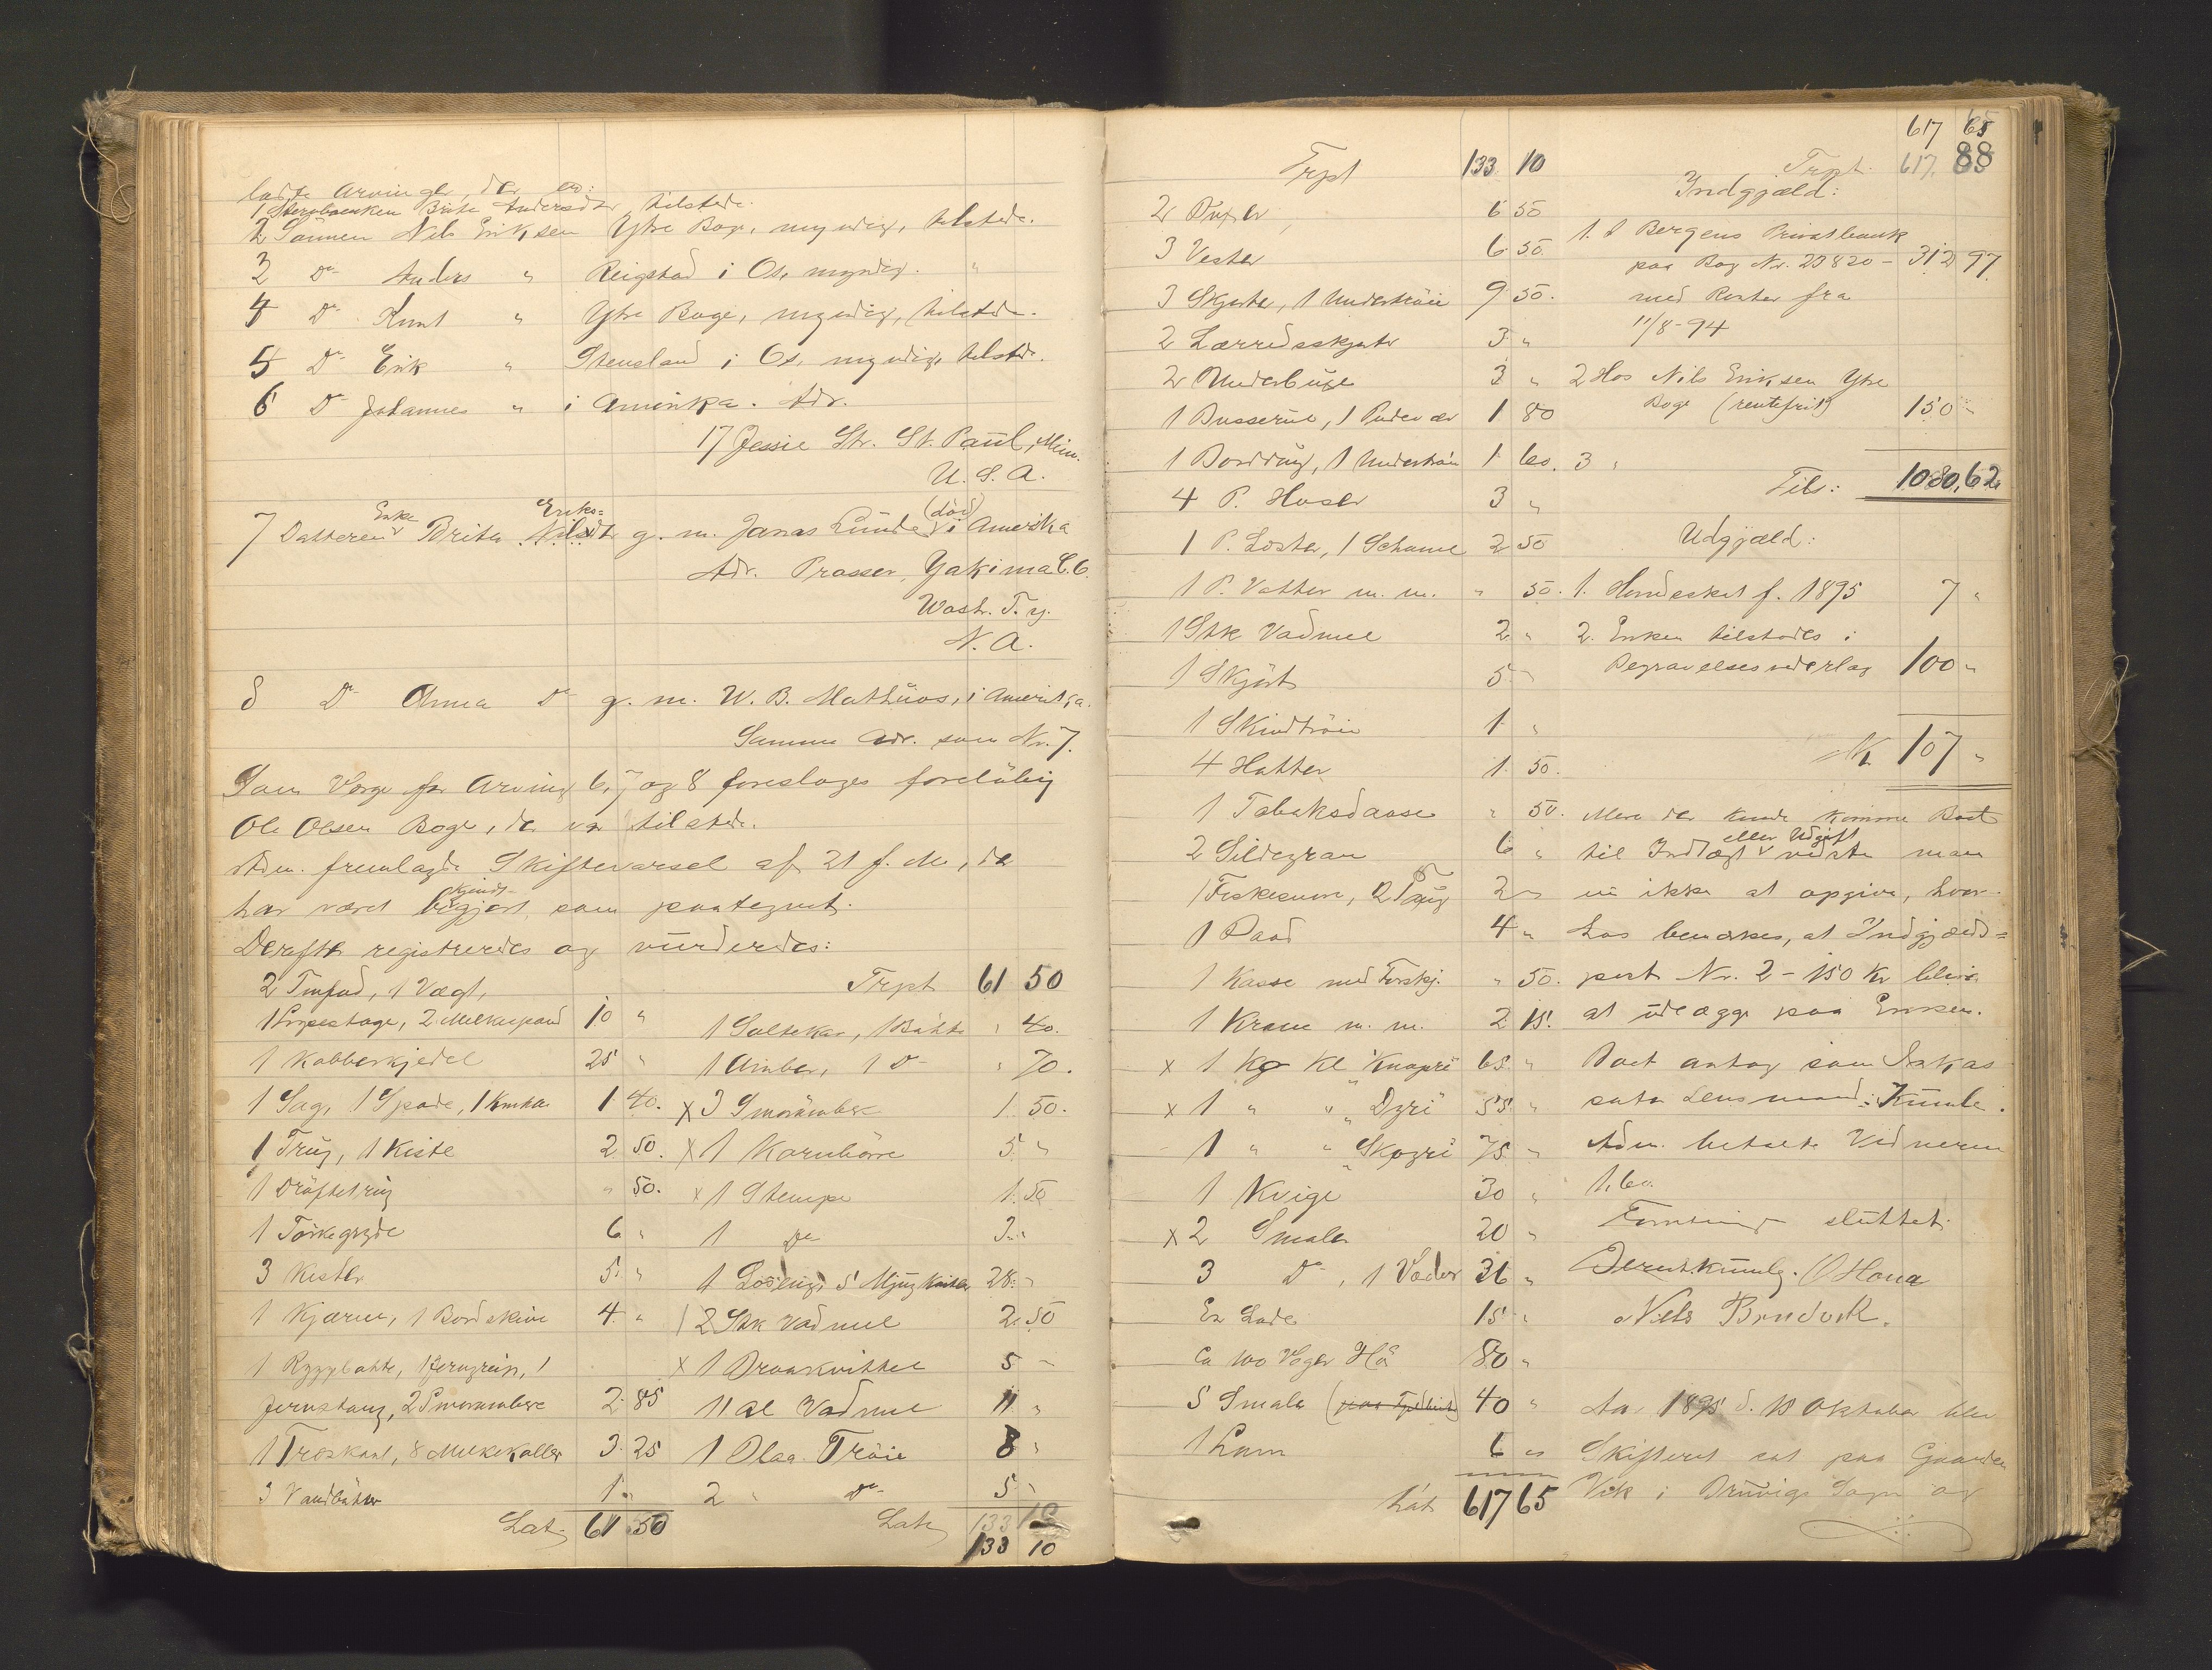 ladte Arvinger, der er:
1 Stervboenken Brite Andersdtr, tilstede.
2 Sønnen Nils Eriksen Ytre Boge, myndig, tilstede.
3 Do Anders " Reigstad i Os, myndig. "
4 Do Knut " Ytre Boge, myndig, tilstede.
5 Do Erik " Stensland i Os, myndig, tilstede.
6 Do Johannes " i Amerika. Adr.
17 Jessie Str. St. Paul, Minn.
U. S. A.
7 Datteren Enke Brita Eriks= Nilsdtr g. m. Jonas Lunde (død) i Amerika
Adr. Prosser, Yakima C.C.
Wash. T.y.
N. A.
8 Do Anna Do g. m. W. B. Mathews, i Amerika.
Samme Adr. som Nr. 7.
Som Værge for Arving 6, 7 og 8 foresloges foreløbig
Ole Olsen Boge, der var tilstede.
Adm. fremlagde Skiftevarsel af 21 f. M., der
har været bekjendtgjort som paategnet.
Derefter registreredes og vurderedes:
2 Tinfad, 1 Vægt,
1 Kobberkjedel 25 "
1 Sag, 1 Spade, 1 Krukke 1. 40.
1 Trug, 1 Kiste 2 50.
1 Drøftetrug " 50.
1 Tørkegryde 6 "
3 Kister 5. "
1 Kjærne, 1 Bordskive 4. "
Jernstang, 2 Smørambere 2. 85
8 Melkekoller 3. 25
3 Vandbøtter 1. "
Lat. 61 50
Trpt 61 50
1 Saltekar, 1 Bøtte " 40.
1 Ambar, 1 Do " 70.
x 3 Smørambere 1. 50.
x 1 Kornbørre 5. "
x 1 Stampe 1. 50
1 Do 3. "
28. "
2 Stk Vadmel 2. 50
x 1 5 "
11 Al Vadmel 11 "
1 Blaa Trøie 8 "
2 " Do 5 "
Lat. 133 10
133 10
Trpt 133 10
2 Buxer 6 50
3 Vester 6 50.
3 Skjorte, 1 Undertrøie 9 50.
2 Lærredsskjorter 3 "
2 Underbuxe 3 "
1 Busserul, 1 Pudevær 1 80
1 Borddug, 1 Undertrøie 1 60.
4 P. Hoser 3 "
1 P. Lester, 1 2 50
1 P. Votter m. m. " 50.
1 Stk Vadmel 2 "
1 Skjørt 5 "
1 Skindtrøie 1 "
4 Hatter 1. 50.
1 Tobaksdaase " 50.
2 Sildegarn 6 "
1 Fiskesnøre, 2 Taug 2 "
1 Baad 4 "
1 Kasse med Forskj. " 50.
1 Krane m. m. 2 15.
x 1 Kg Kl "Knapri" 65. "
x 1 " " "Dyri" 55. "
1 " " "Skogri" 75 "
1 Kvige 30 "
x 2 Smaler 20 "
3 Do, 1 Væder 36 "
En Lade 15 "
Ca 100 Voger Hø 80 "
5 Smaler 40 "
1 Lam 6 "
Lat. 617 65
617 65
88
Trpt. 617.
Indgjæld:
1. I Bergens Privatbank
paa Bog Nr. 20820 - 312 97
med Renter fra
11/8-94
2 Hos Nils Eriksen Ytre
Boge (rentefrit) 150 "
3 "
Tils: 1080,62
Udgjæld:
1. Herredsskat f. 1895 7 "
2. Enken tilstodes i
Begravelsesvederlag 100 "
Kr 107 "
Mere der kunde komme Boet
til Indtægt eller Udgift vidste man
nu ikke at opgive, hvor-
hos bemærkes, at Indgjælds=
post Nr. 2 - 150 Kr bliver
at udlægge paa Enken.
Boet antog som Inkas
sator Lensmand Kumle.
Adm. betalte Vidnerne
1.60.
Forretning sluttet.
Nils Brudvik.
Aar 1895 d. 18 Oktober blev
Skifteret sat paa Gaarden
Vik i Bruvigs Sogn af